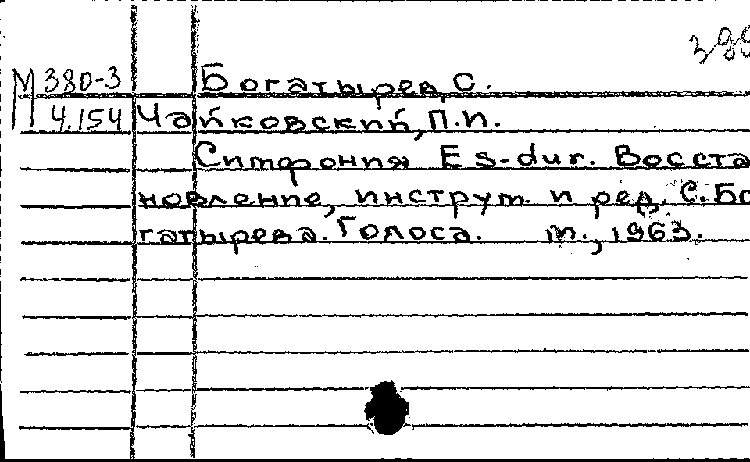 399
М 380-3 Богатырев, С.
4.154 Чайковский, П.И.
Симфония Es-dur. Восста
новление, инструм. и ред. С. Бо
гатырева. Голоса. м., 1963.